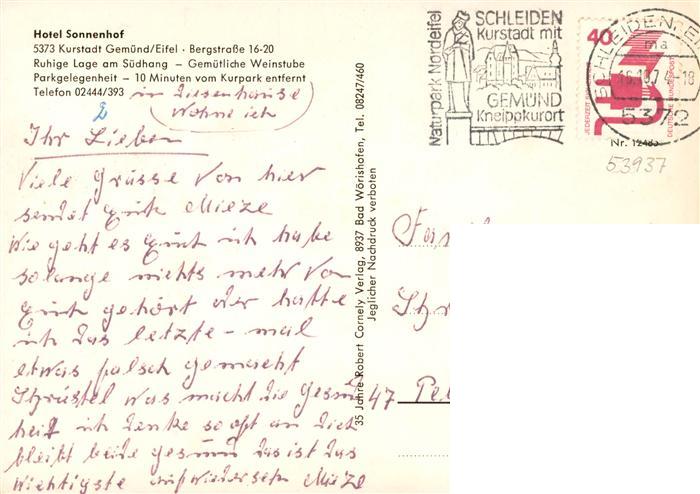 Hotel Sonnenhof
5373 Kurstadt Gemünd/Eifel · Bergstraße 16-20
Ruhige Lage am Südhang – Gemütliche Weinstube
Parkgelegenheit – 10 Minuten vom Kurpark entfernt
Telefon 02444/393
in diesen hause
Wohne ich
Ihr Lieben
Viele Grüsse Von hier
sendet Euch Mieze
Wie geht es Euch ich habe
solange nichts mehr Von
Euch gehört oder hatte
ich das letzte-mal
etwas falsch gemacht
was macht die Gesund
heit ich denke so oft an Dich
bleibt beide gesund das ist das
Wichtigste aufwiedersehn Mieze
35 Jahre Robert Cornely Verlag, 8937 Bad Wörishofen, Tel. 08247/460
Jeglicher Nachdruck verboten
Naturpark Nordeifel
SCHLEIDEN
Kurstadt mit
GEMÜND
Kneippkurort
SCHLEIDEN, EIFEL
ma
-18
5372
40
JEDERZEIT
DEUTSCHE BUNDESPOST
Nr. 12485
53937
Fam
47